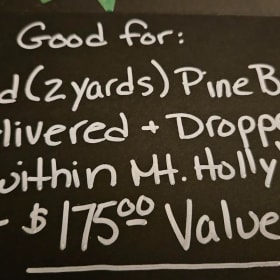 Good for:
d (2 yards) Pine B
livered + Dropp
within Mt. Holly
- $175⁰⁰ Value